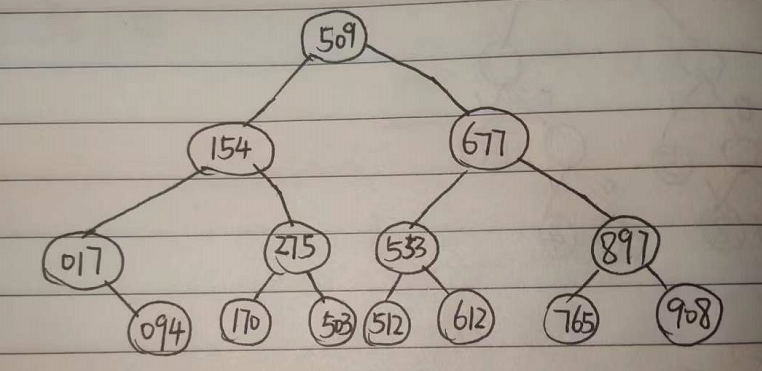 509
154 677
017 275 553 897
094 170 503 512 612 765 908